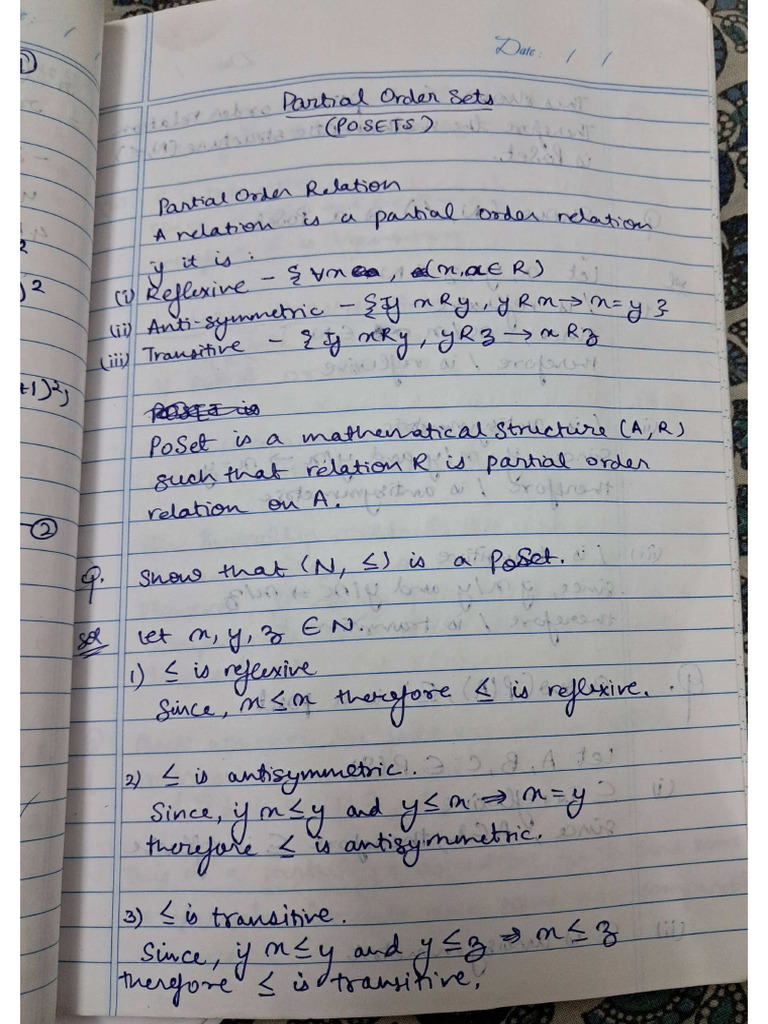 Date: / /
Partial Order Sets
(POSETS)
Partial Order Relation
A relation is a partial order relation
if it is :
(i) Reflexive - { ∀x , (x, x ∈ R)
(ii) Anti-symmetric - { If xRy, yRx → x = y }
(iii) Transitive - { If xRy, yRz → xRz
POSET is
PoSet is a mathematical structure (A, R)
such that relation R is partial order
relation on A.
Q. Show that (N, ≤) is a PoSet.
Sol Let x, y, z ∈ N.
1) ≤ is reflexive
Since, x ≤ x therefore ≤ is reflexive.
2) ≤ is antisymmetric.
Since, if x ≤ y and y ≤ x ⇒ x = y
therefore ≤ is antisymmetric.
3) ≤ is transitive.
Since, if x ≤ y and y ≤ z ⇒ x ≤ z
therefore ≤ is transitive.
+1)²;
2